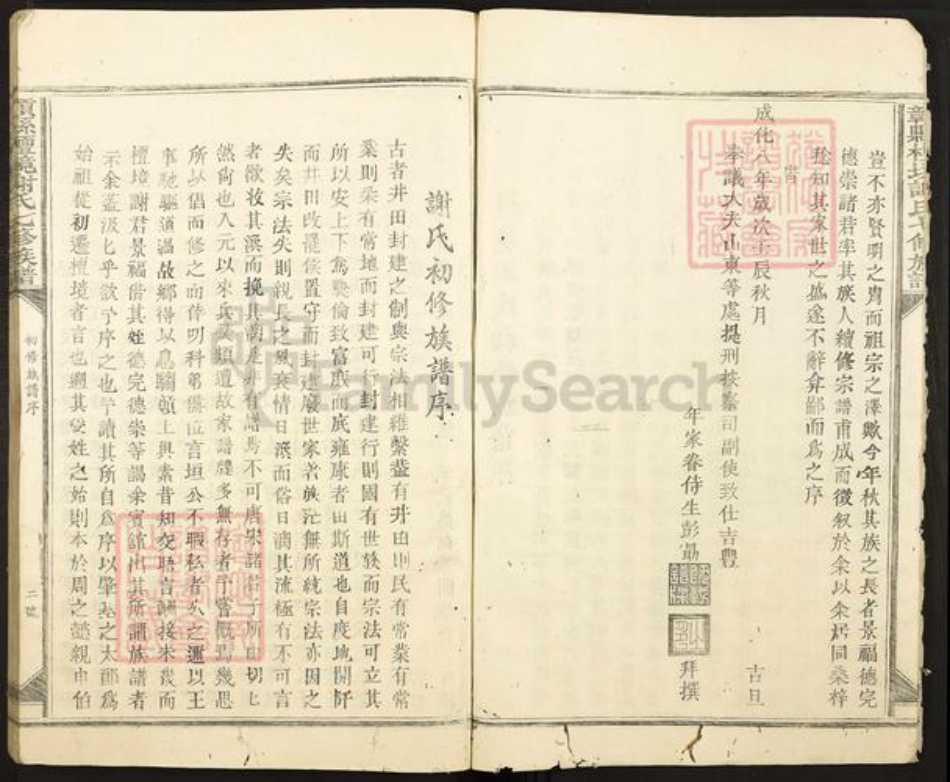 豈不亦賢明之胄而祖宗之澤歟今年秋其族之長者景福德完
德崇諸君率其族人續修宗譜甫成而徵叙於余以余居同桑梓
稔知其家世之盛遂不辭弇鄙而爲之序
成化八年歲次壬辰秋月 古旦
奉議大夫山東等處提刑按察司副使致仕吉豐
年家眷侍生彭 拜撰
謝氏初修族譜序
古者井田封建之制與宗法相維繫蓋有井田則民有常業有常
業則柒有常地而封建可行封建行則國有世族而宗法可立其
所以安上下篤彝倫致富庶而底雍康者由斯道也自度地開阡
而井田改罷侯置守而封建廢世家著族茫無所統宗法亦因之
失矣宗法失則親長之風衰情日漠而俗日漓其流極有不可言
者欲收其渙而挽其漓是非有譜焉不可唐宋諸君子所由切匕
然尚也入元以來兵燹頻遭故家譜牒多無存者予嘗慨焉幾思
所以倡而修之而倖叨科第備位言垣公不暇私者久之邇以王
事馳驅道過故鄉得以息驂頓上與素昔知交晤言歡接未幾而
檀境謝君景福偕其姪德完德崇等謁余賓舘出其所謂族譜者
示余蓋汲匕乎欲予序之也予讀其所自爲序以肇基之太郎爲
始祖從初遷檀境者言也遡其受姓之始則本於周之懿親申伯
初修族譜序
二號
FamilySearch